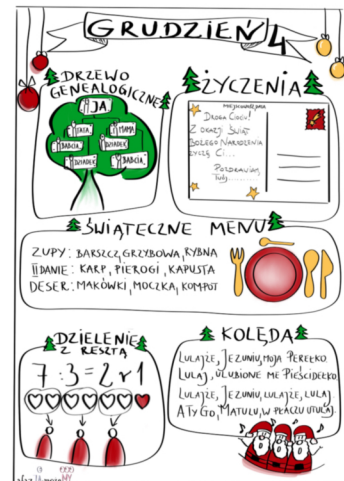 GRUDZIEŃ 4
DRZEWO
GENEALOGICZNE
JA
TATA
MAMA
BABCIA
DZIADEK
DZIADEK
BABCIA
ŻYCZENIA
MIEJSCOWOŚĆ, DATA
DROGA CIOCIU!
Z OKAZJI ŚWIĄT
BOŻEGO NARODZENIA
ŻYCZĘ CI...
POZDRAWIAM,
TWÓJ
ŚWIĄTECZNE MENU
ZUPY: BARSZCZ, GRZYBOWA, RYBNA
II DANIE: KARP, PIEROGI, KAPUSTA
DESER: MAKÓWKI, MOCZKA, KOMPOT
DZIELENIE
Z RESZTĄ
7:3=2 r 1
KOLĘDA
LULAJŻE, JEZUNIU, MOJA PEREŁKO
LULAJ, ULUBIONE ME PIEŚCIDEŁKO.
LULAJŻE, JEZUNIU, LULAJŻE, LULAJ
A TY GO, MATULU, W PŁACZU UTULAJ.